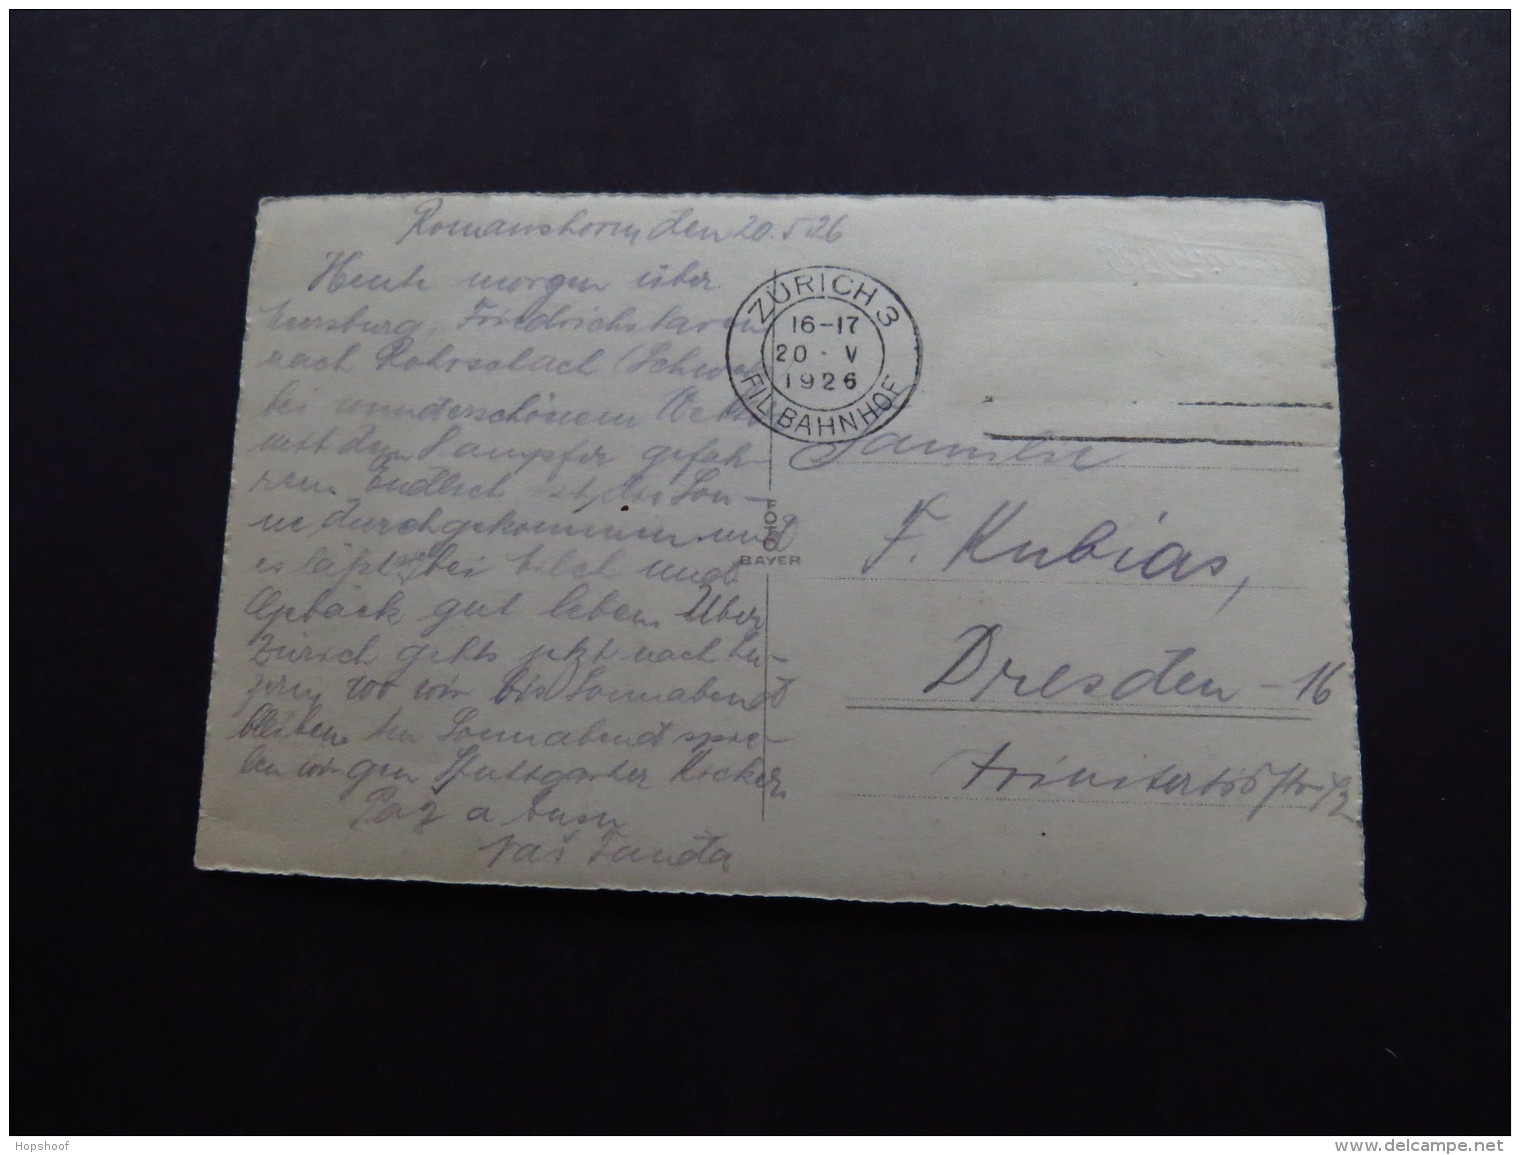 Romanshorn, den 20.5.26
Heute morgen über
Meersburg, Friedrichshaven
nach Rohrschach (Schweiz)
bei wunderschönem Wetter
mit dem Dampfer gefah-
ren. Endlich ist die Son-
ne durchgekommen und
es läßt sich bei Milch und
Gebäck gut leben. Über
Zürich gehts jetzt nach Lu-
zern wo wir bis Sonnabend
bleiben. Am Sonnabend spie-
len wir gen Stuttgarter Kicker.
ZÜRICH 3
16-17
20 · V
1926
FIL. BAHNHOF
FOTO
BAYER
Familie
F. Kubias,
Dresden - 16
Hopshoof
www.delcampe.net